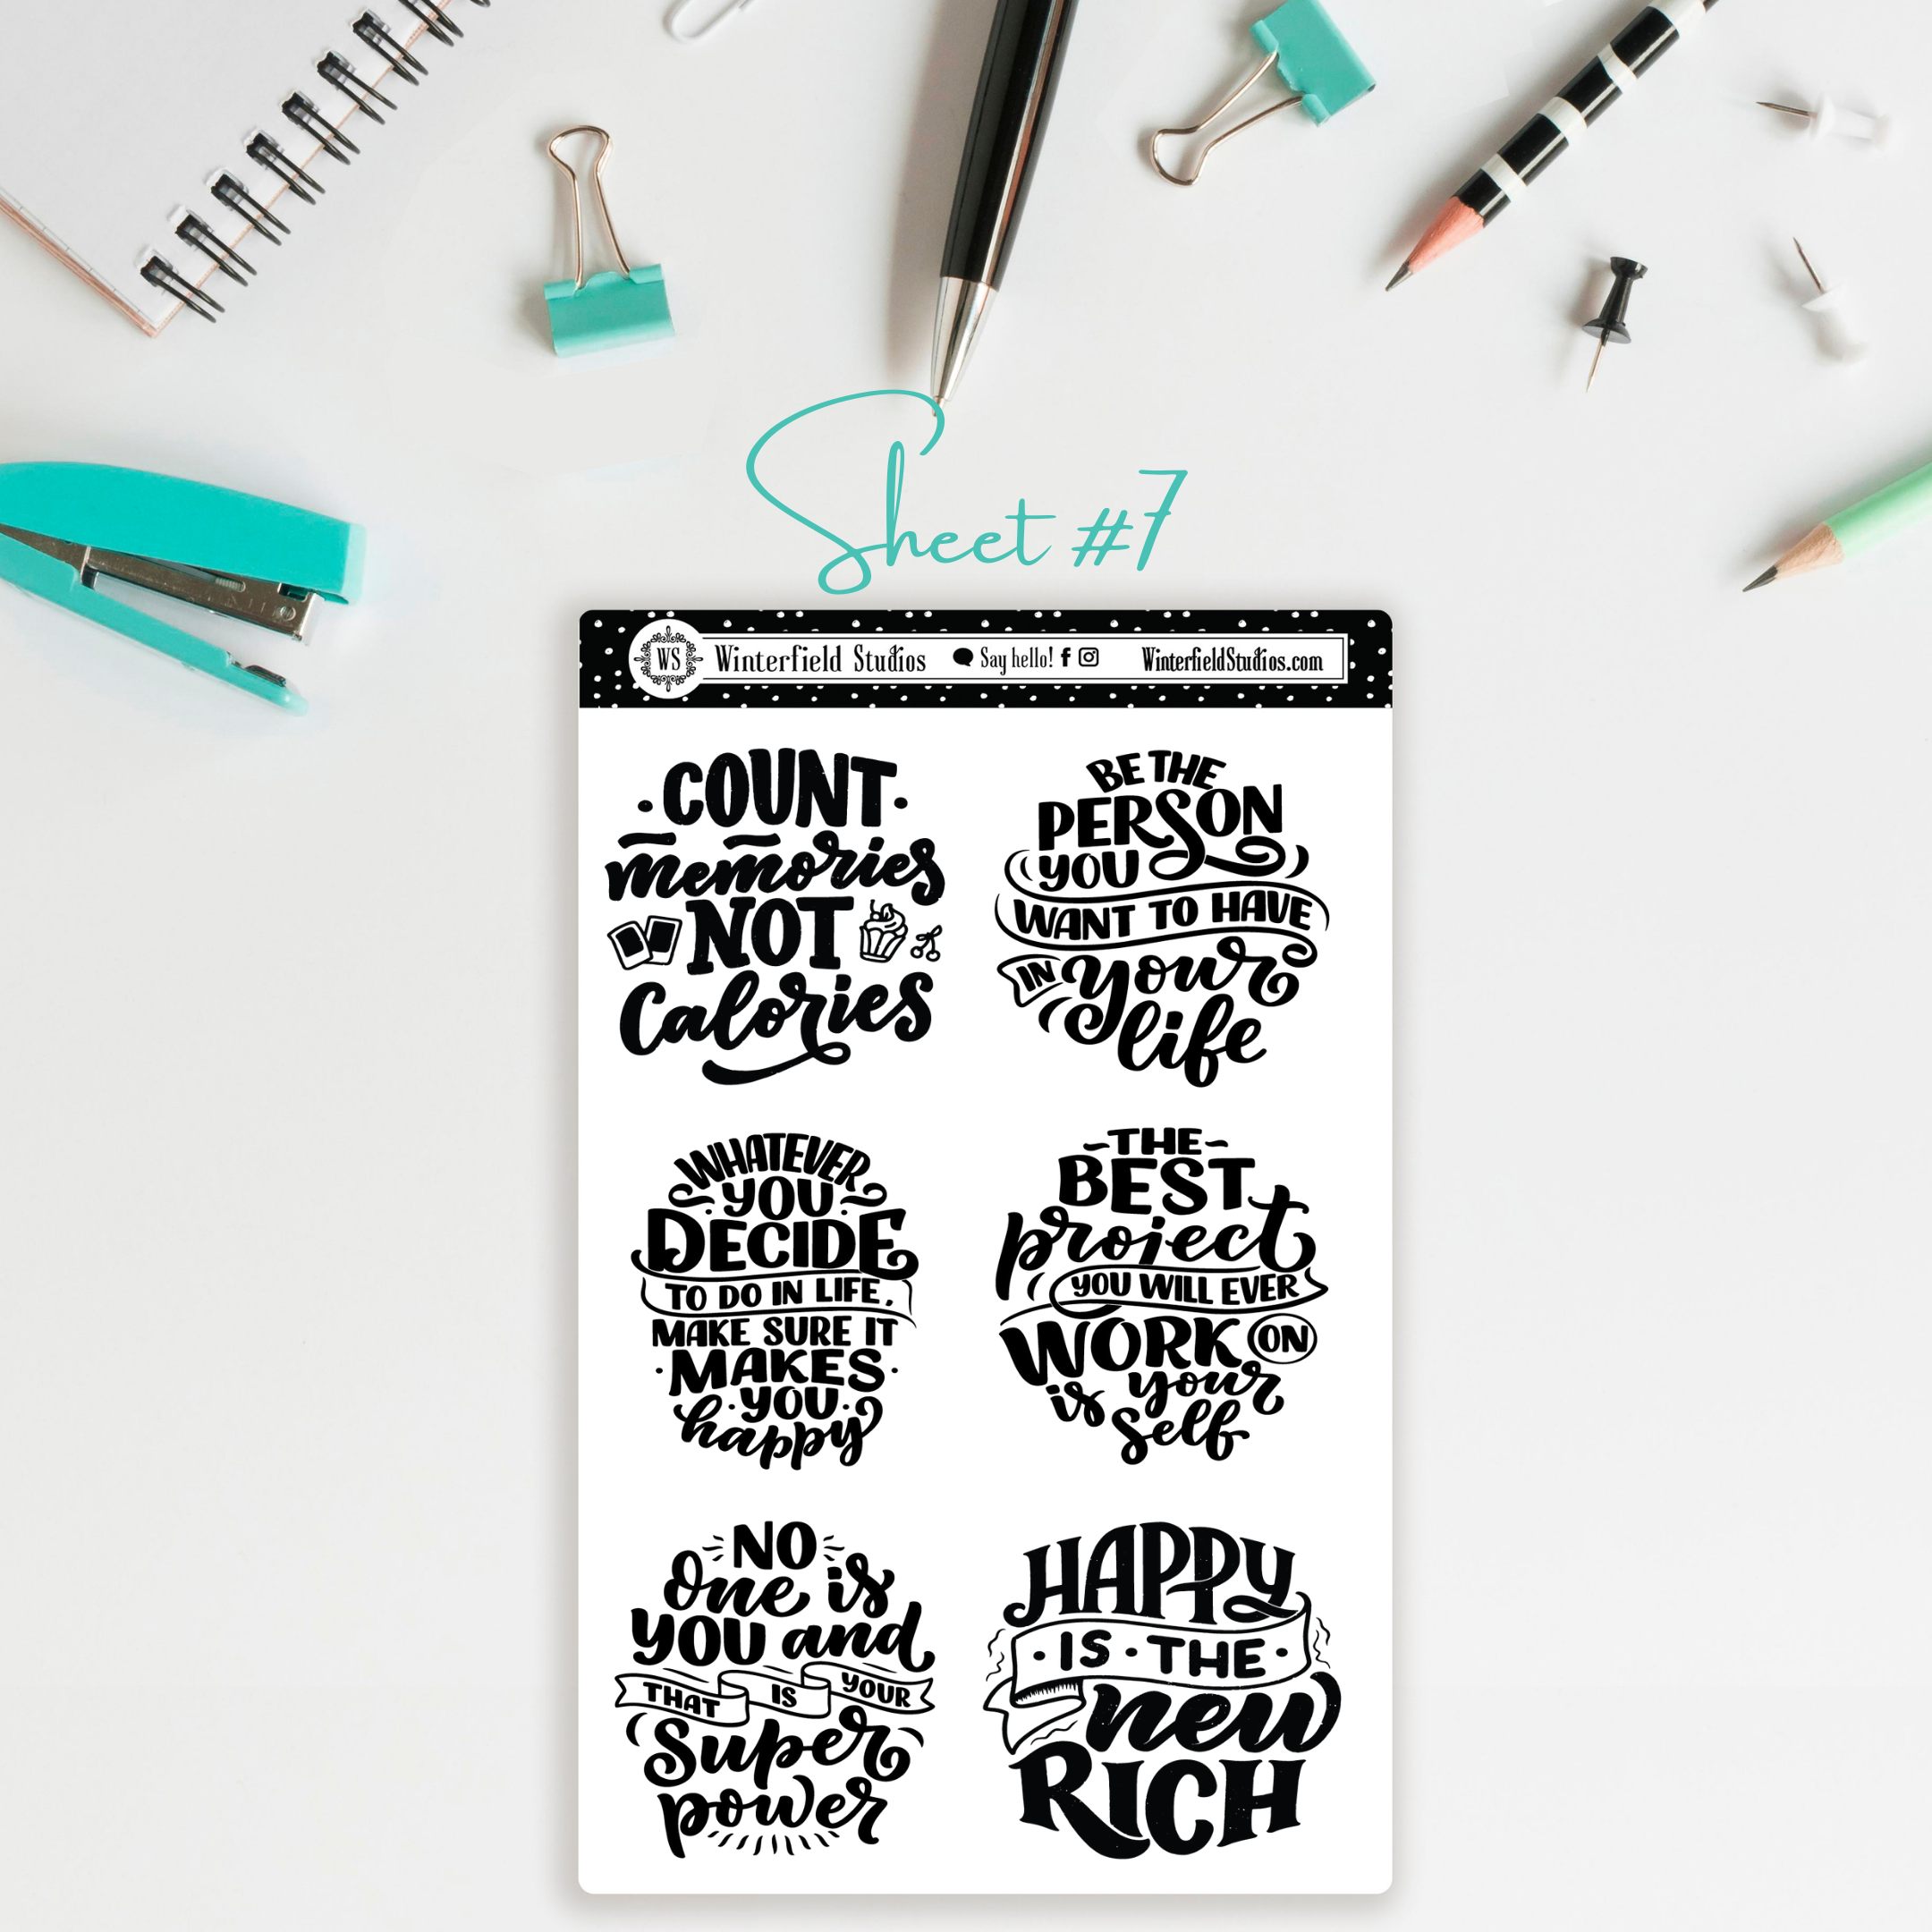 Sheet #7
WS Winterfield Studios Say hello! WinterfieldStudios.com
COUNT
memories
NOT
Calories
BE THE
PERSON
YOU
WANT TO HAVE
IN your
life
WHATEVER
YOU
DECIDE
TO DO IN LIFE,
MAKE SURE IT
MAKES
YOU
happy
THE
BEST
project
YOU WILL EVER
WORK ON
is your
self
NO
One is
YOU and
THAT IS YOUR
Super
power
HAPPY
IS THE
new
RICH